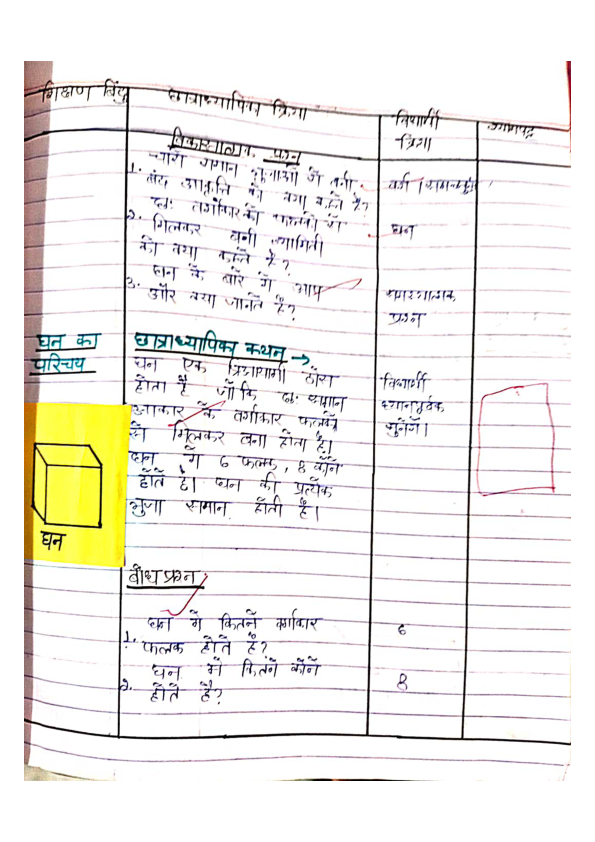 शिक्षण बिंदु
छात्राध्यापिका क्रिया
विद्यार्थी
क्रिया
श्यामपट्ट
विकासात्मक प्रश्न
1. चारों समान भुजाओं से बनी
बंद आकृति को क्या कहते है?
वर्ग। समचतुर्भुज
2. छः वर्गाकार फलकों से
मिलकर बनी ज्यामिती
को क्या कहते है?
घन
3. घन के बारे में आप
और क्या जानते है?
समस्यात्मक
प्रश्न
घन का
परिचय
छात्राध्यापिका कथन →
घन एक त्रिआयामी ठोस
होता है जोकि छः समान
आकार के वर्गाकार फलकों
से मिलकर बना होता है।
घन में 6 फलक, 8 कोने
होते है। घन की प्रत्येक
भुजा समान होती है।
विद्यार्थी
ध्यानपूर्वक
सुनेगें।
घन
बोध प्रश्न
1. घन में कितने वर्गाकार
फलक होते है?
6
2. घन में कितने कोने
होते है?
8